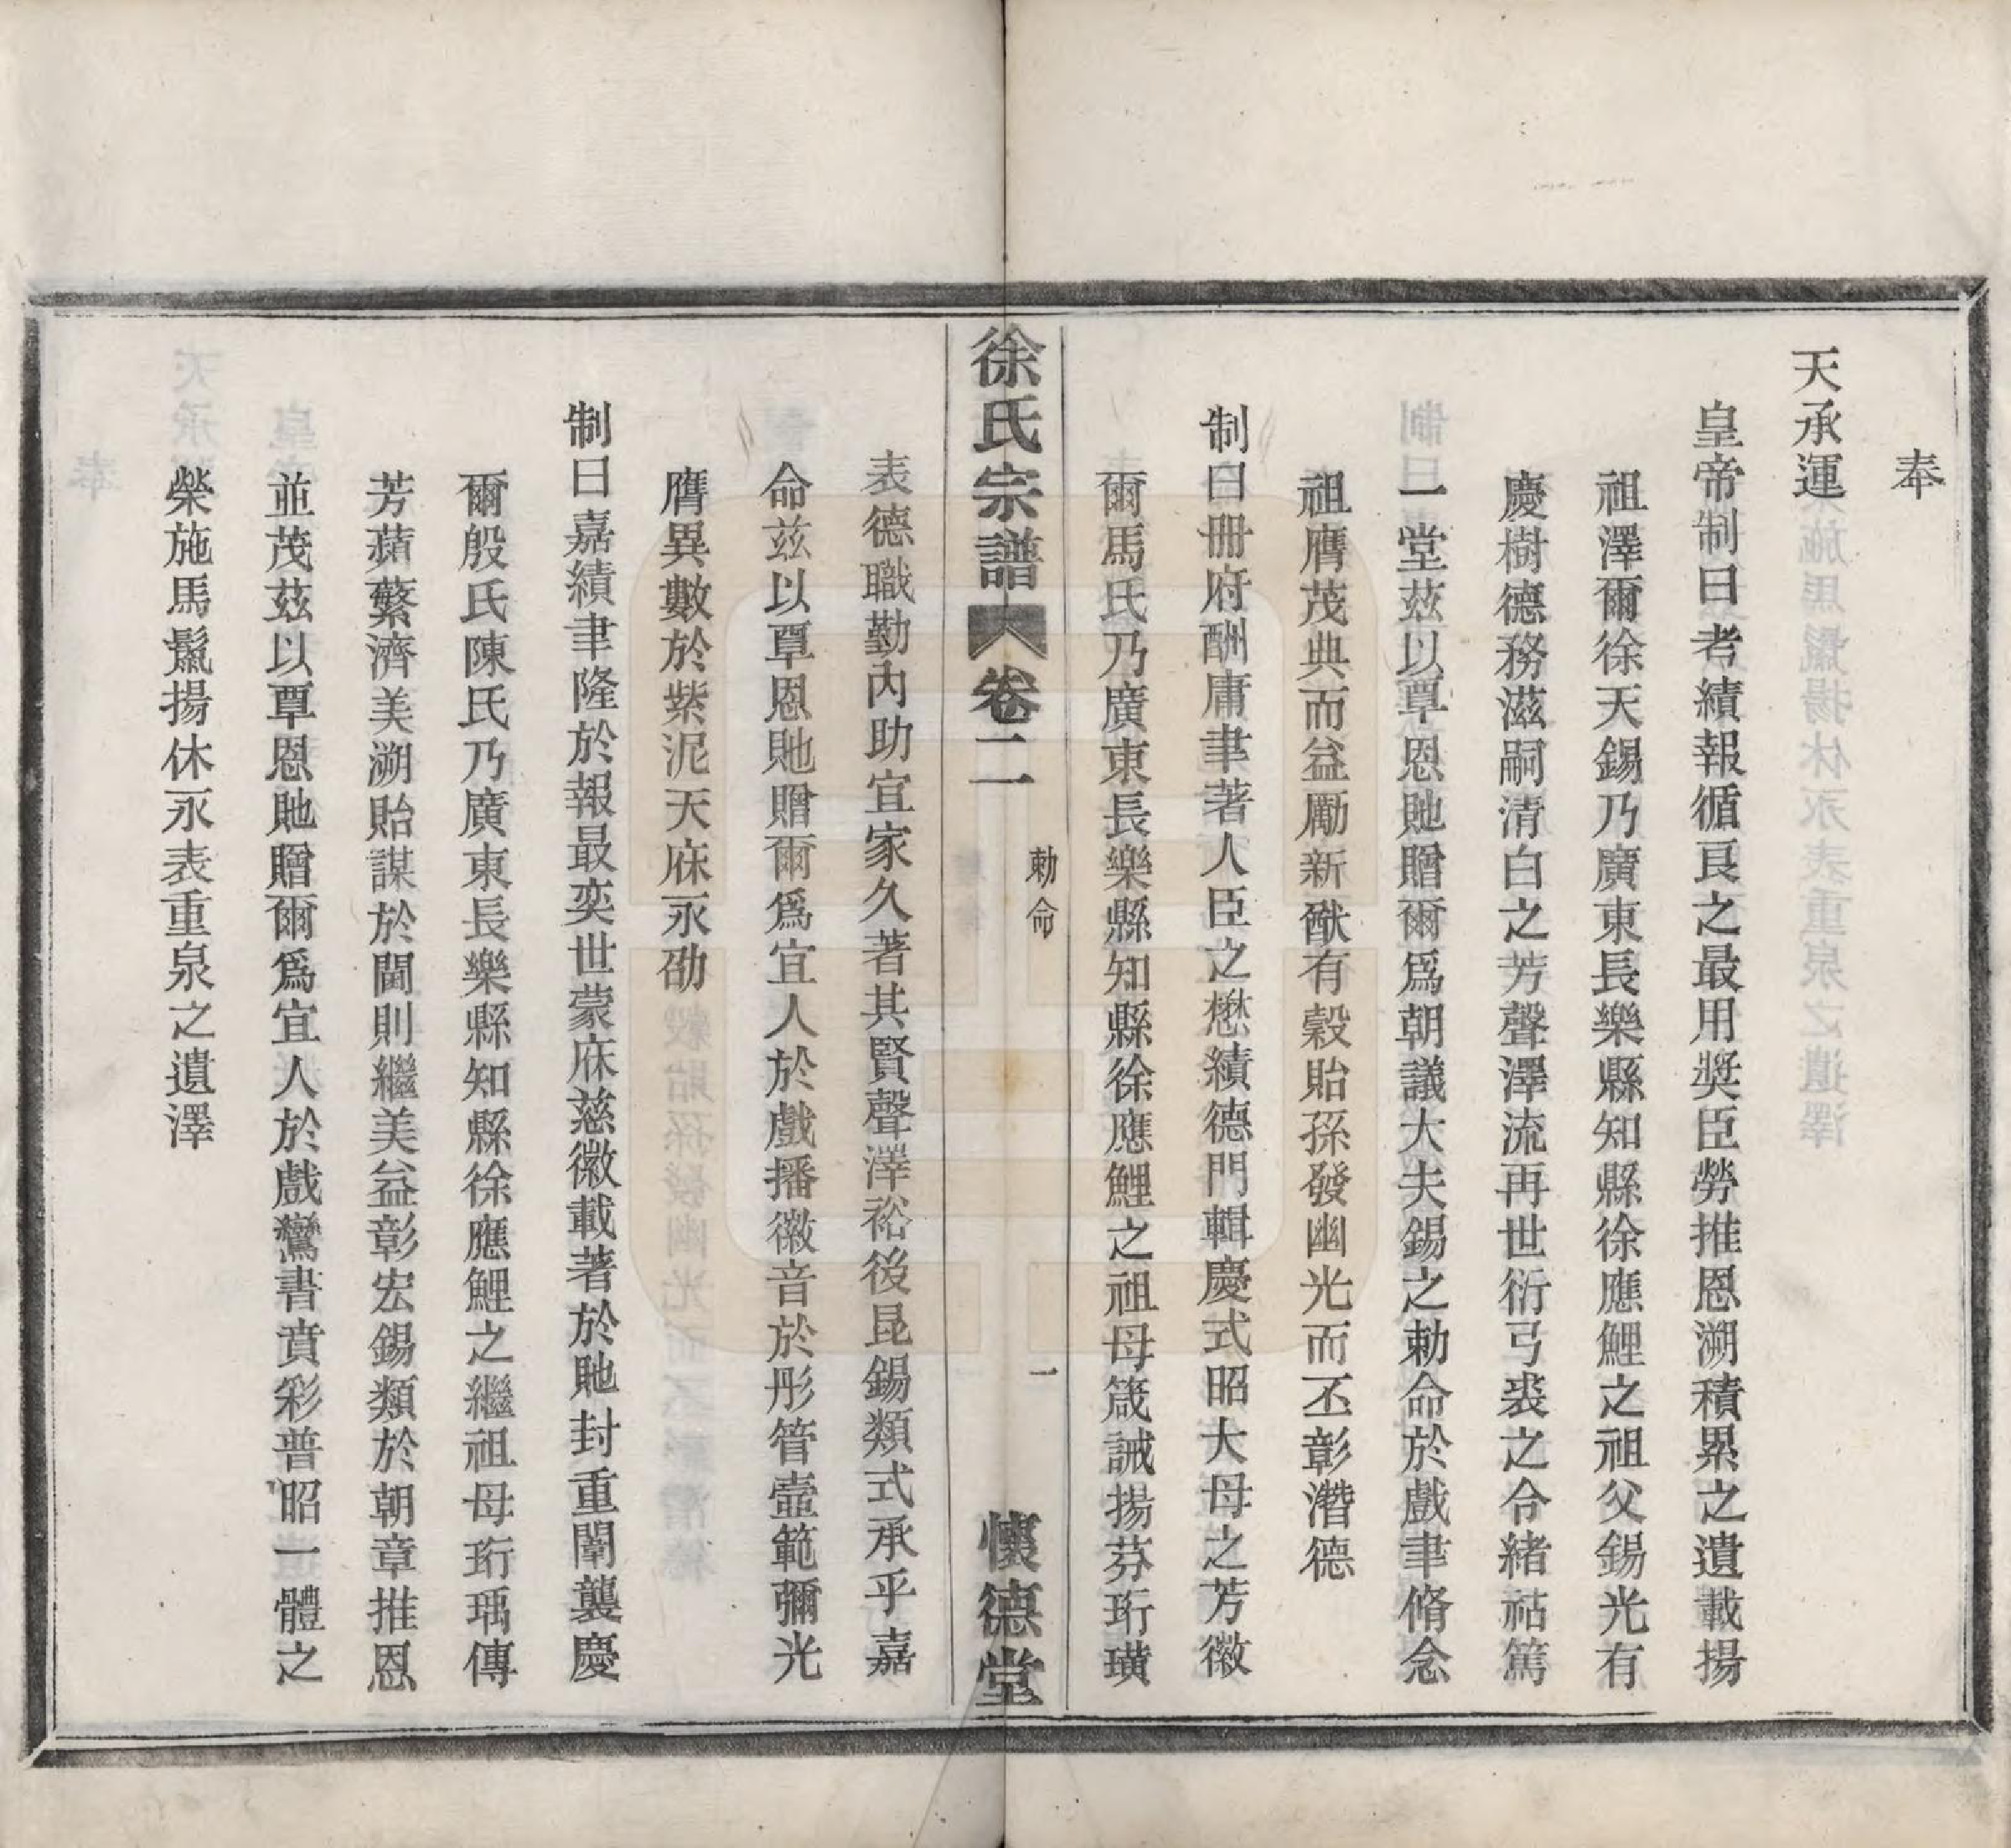 奉
天承運
皇帝制曰考績報循良之最用奬臣勞推恩溯積累之遺載揚
祖澤爾徐天錫乃廣東長樂縣知縣徐應鯉之祖父錫光有
慶樹德務滋嗣清白之芳聲澤流再世衍弓裘之令緒祜篤
一堂茲以覃恩貤贈爾爲朝議大夫錫之勅命於戲聿脩念
祖膺茂典而益勵新猷有穀貽孫發幽光而丕彰潛德
制曰冊府酬庸聿著人臣之懋績德門輯慶式昭大母之芳徽
爾馬氏乃廣東長樂縣知縣徐應鯉之祖母箴誡揚芬珩璜
徐氏宗譜 卷二 勅命 一 懷德堂
表德職勤內助宜家久著其賢聲澤裕後昆錫類式承乎嘉
命茲以覃恩貤贈爾爲宜人於戲播徽音於彤管壼範彌光
膺異數於紫泥天庥永劭
制曰嘉績聿隆於報最奕世蒙庥慈徽載著於貤封重闈襲慶
爾殷氏陳氏乃廣東長樂縣知縣徐應鯉之繼祖母珩瑀傳
芳蘋蘩濟美溯貽謀於閫則繼美益彰宏錫類於朝章推恩
並茂茲以覃恩貤贈爾爲宜人於戲鸞書賁彩普昭一體之
榮施馬鬣揚休永表重泉之遺澤